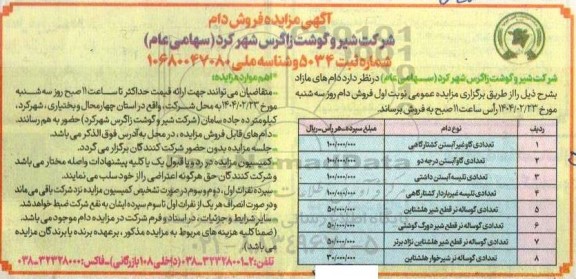 آگهی مزایده فروش دام
شرکت شیر و گوشت زاگرس شهر کرد (سهامی عام)
شماره ثبت ۵۰۳۴ و شناسه ملی ۱۰۶۸۰۰۴۷۰۸۰
شرکت شیر و گوشت زاگرس شهر کرد (سهامی عام) در نظر دارد دام های مازاد
بشرح ذیل را از طریق برگزاری مزایده عمومی نوبت اول فروش دام روز سه شنبه
مورخ ۱۴۰۴/۰۲/۲۳ رأس ساعت ۱۱ صبح به فروش برساند.
ردیف نوع دام مبلغ سپرده هر رأس-ریال
۱ تعدادی گاو غیر آبستن کشتارگاهی ۱۰۰/۰۰۰/۰۰۰
۲ تعدادی گاو آبستن درجه دو ۱۰۰/۰۰۰/۰۰۰
۳ تعدادی تلیسه آبستن داشتی ۱۰۰/۰۰۰/۰۰۰
۴ تعدادی تلیسه غیرباردار کشتارگاهی ۱۰۰/۰۰۰/۰۰۰
۵ تعدادی گوساله نر قطع شیر هلشتاین ۵۰/۰۰۰/۰۰۰
۶ تعدادی گوساله نر قطع شیر دورگ گوشتی ۵۰/۰۰۰/۰۰۰
۷ تعدادی گوساله نر قطع شیر هلشتاین نژاد برتر ۵۰/۰۰۰/۰۰۰
۸ تعدادی گوساله نر شیر خوار هلشتاین ۳۰/۰۰۰/۰۰۰
*اهم موارد مزایده:*
- متقاضیان می توانند جهت ارائه قیمت حداکثر تا ساعت ۱۱ صبح روز سه شنبه
مورخ ۱۴۰۴/۰۲/۲۳ به محل شرکت، واقع در استان چهارمحال و بختیاری، شهرکرد،
کیلومتر ده جاده سامان (شرکت شیر و گوشت زاگرس شهرکرد) حضور به هم رسانند.
- دام های قابل فروش مزایده، در محل به آدرس فوق الذکر می باشد.
- جلسه مزایده بدون حضور شرکت کنندگان برگزار می گردد.
- کمیسیون مزایده در رد و یا قبول یک یا کلیه پیشنهادات واصله مختار می باشد
و شرکت کنندگان حق هرگونه اعتراضی را از خود سلب می نمایند.
- سپرده نفرات اول، دوم و سوم در صورت تشخیص کمیسیون مزایده نزد شرکت باقی می ماند
و در صورت انصراف هر یک از نفرات اول تا سوم سپرده ایشان به نفع شرکت ضبط خواهد شد.
- سایر شرایط و جزئیات، در اسناد و فرم شرکت در مزایده دام موجود می باشد.
(ضمناً کلیه هزینه های مربوط به مزایده مذکور، برعهده برنده یا برندگان مزایده
می باشد).
تلفن: ۲-۳۲۳۲۸۰۰۱-۰۳۸ (داخلی ۱۰۸ بازرگانی) - فاکس: ۳۲۳۲۸۰۰۰-۰۳۸